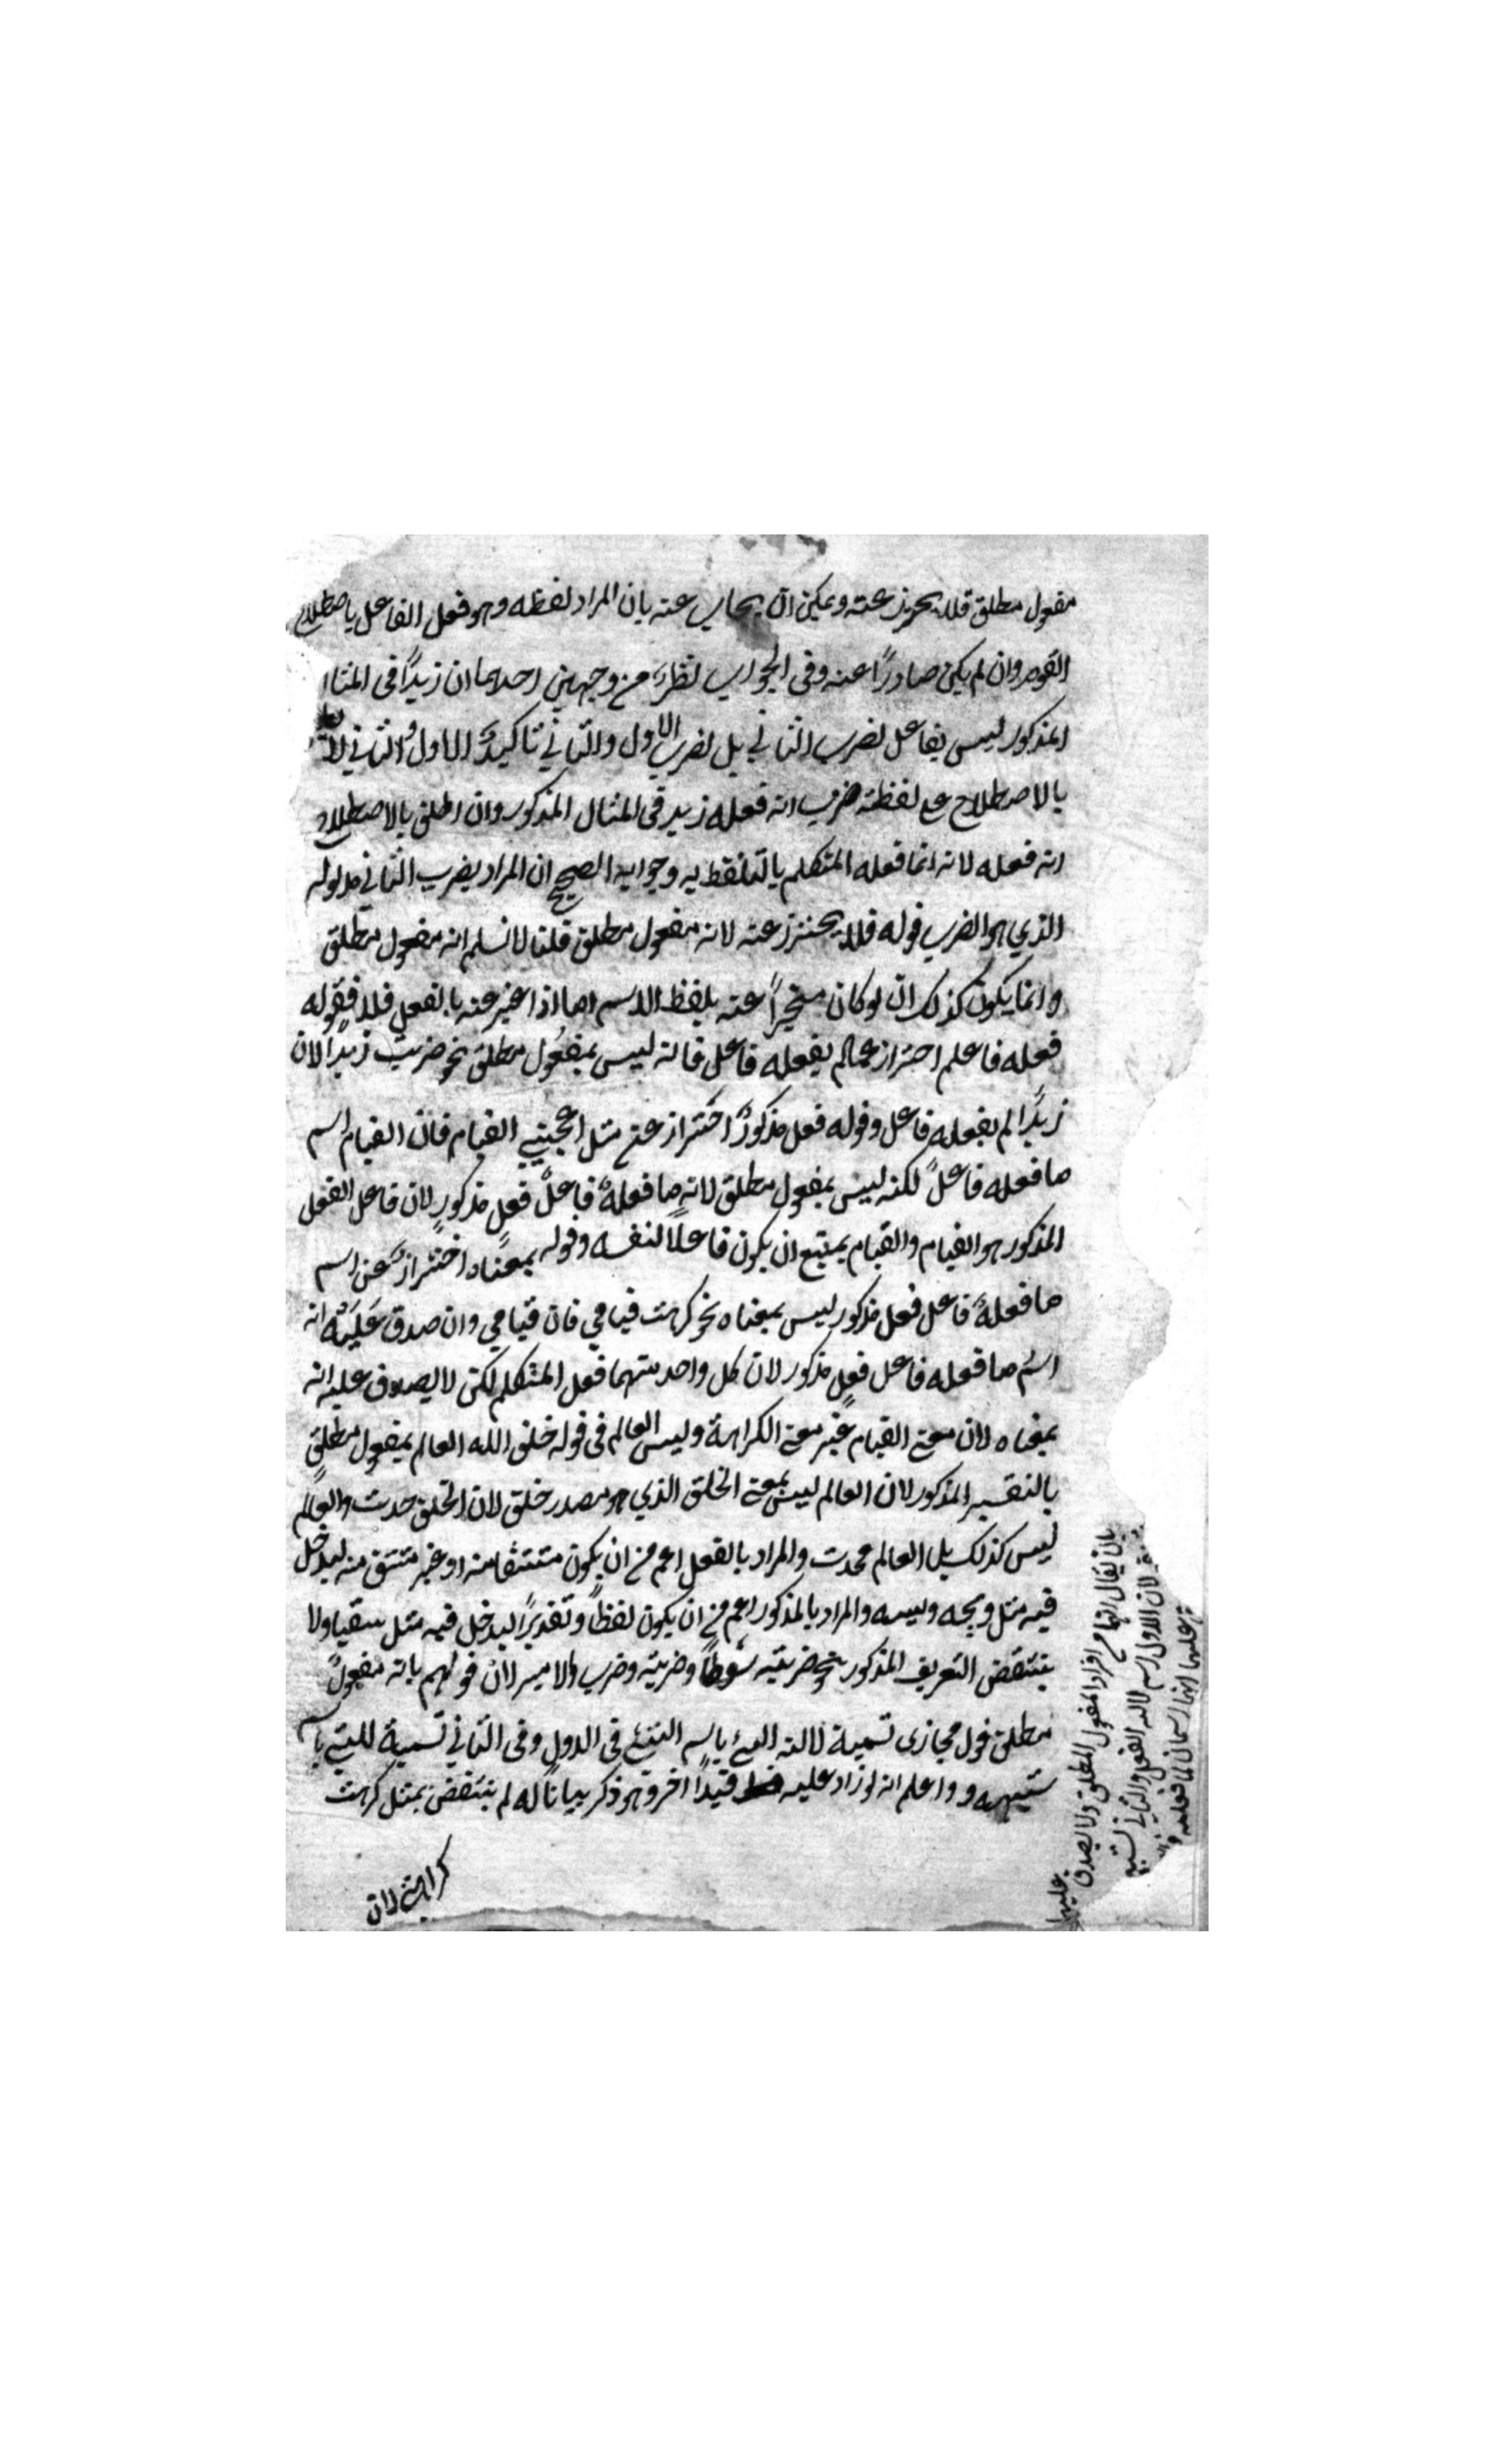 مفعول مطلق فلا يحترز عنه ويمكن ان يجاب عنه بان المراد لفظه وهو فعل الفاعل باصطلاح
القوم وان لم يكن صادرًا عنه وفى الجواب نظرٌ من وجهين احدهما ان زيدًا فى المثال
المذكور ليس بفاعل لضرب الثاني بل لضرب الاول والثاني تاكيدٌ الاول والثاني لا
بالاصطلاح على لفظة ضرب انه فعله زيد فى المثال المذكور وان اطلق بالاصطلاح
انه فعله لانه انما فعله المتكلم بالتلفظ به وجوابه الصحيح ان المراد بضرب الثاني مدلوله
الذي هو الضرب قوله فلا يحترز عنه لانه مفعول مطلق قلنا لا نسلم انه مفعول مطلق
وانما يكون كذلك ان لو كان مخبرًا عنه بلفظ الاسم اما اذا اخبر عنه بالفعل فلا فقوله
فعله فاعل احتراز عما لم يفعله فاعل فانه ليس بمفعول مطلق نحو ضربت زيدًا لان
زيدًا لم يفعله فاعل وقوله فعل مذكورٌ احتراز عن مثل اعجبني القيام فان القيام اسم
ما فعله فاعلٌ لكنه ليس بمفعول مطلق لانه ما فعلهٌ فاعلٌ فعلٍ مذكورٍ لان فاعل الفعل
المذكور هو القيام والقيام يمتنع ان يكون فاعلًا لنفسه وقوله بمعناه احترازٌ عن اسم
ما فعلهٌ فاعل فعل مذكور ليس بمعناه نحو كرهت قيامي فان قيامي وان صدق عَلَيْه انه
اسمُ ما فعله فاعل فعلٍ مذكور لان كل واحد منهما فعل المتكلم لكن لا يصدق عليه انه
بمعناه لان معنى القيام غير معنى الكراهة وليس العالم فى قوله خلق الله العالم بمفعول مطلق
بالتفسير المذكور لان العالم ليس بمعنى الخلق الذي هو مصدر خلق لان الخلق حدث والعالم
ليس كذلك بل العالم محدث والمراد بالفعل اعم من ان يكون مشتقا منه او غير مشتق منه ليدخل
فيه مثل ويحه وويسه والمراد بالمذكور اعم من ان يكون لفظًا وتقديرًا ليدخل فيه مثل سقيا ولا
ينتقض التعريف المذكور بنحو ضربته سوطًا وضربته وضرب الامير لان قولهم بانه مفعولٌ
مطلق قول مجازى تسمية لالة الشئ باسم الشئ فى الاول وفى الثاني تسمية للشئ باسم
شبيهه و واعلم انه لو زاد عليه قيدًا اخر وهو ذكر بيانًا له لم ينتقض بمثل كرهت
كراهتي لان
بان يقال انهما من افراد المفعول المطلق ولا يصدق
عليهما
لان الاول اسم لالة الفعل والثاني شبيه
عليهما انهما اسمان لما فعله